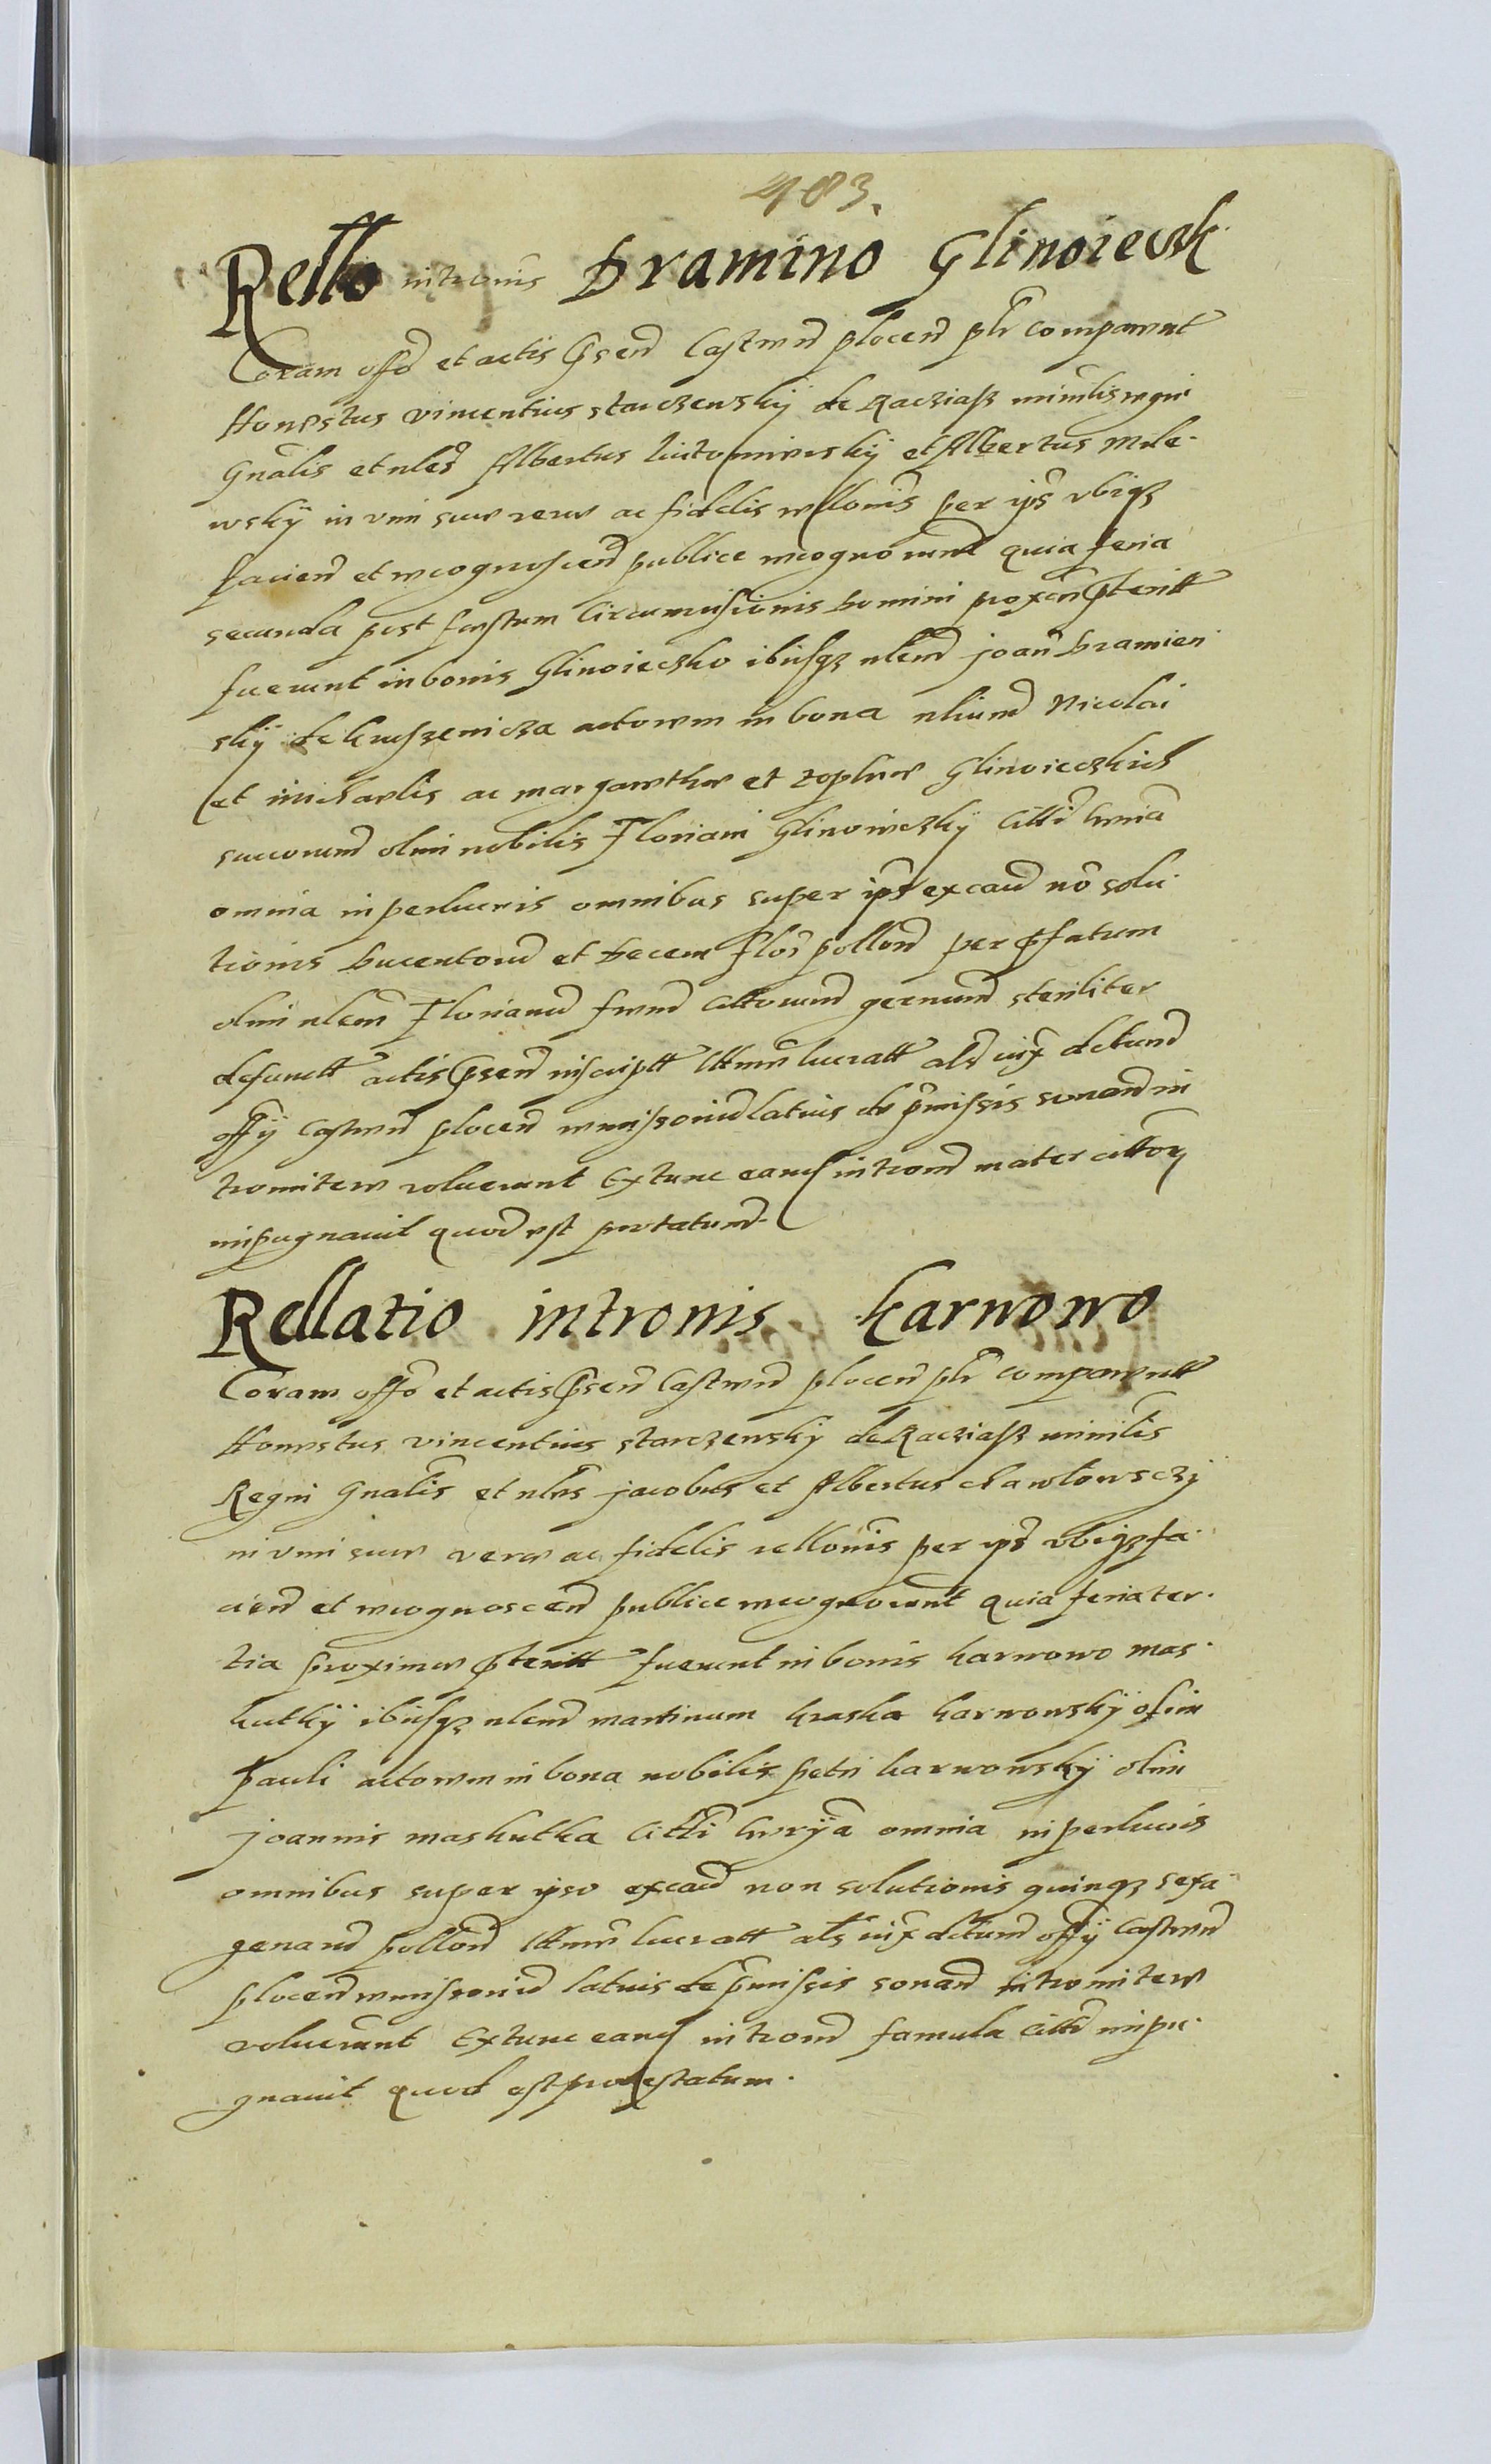 483.
Rello intronis Dramino Glinoieczk
Coram offo et actis psen Castren plocen plr comparent
Honestus vincentius starczewskÿ de Raciąsz minilis regni
Gnalis et nles Albertus lutomirskÿ et Albertus mile-
wskÿ in vim sue vere ac fidelis rellonis per ips vbiqz
faciend et recognoscend publice recognorunt quia feria
secunda post festum Circumcisionis Domini proxen pteritt
fuerunt in bonis Glinoieczko ibusqz nlem joan Dramien
skÿ de kuszenicza actorem in bona nlium Nicolai
et michaelis ac margarethe et zophie Glinoieczkich
succorum olim nobilis Floriani Glinoieczkÿ Citti
omnia in perlucris omnibus super ips ex cau no solu
tionis Ducentoru et Decem Flor pollon per pfatum
olim nlem Florianu frem cittorum germanum steriliter
defunctt actis psen inscriptt lttme lucratt als iux detum
offÿ Castren plocen remissoriu latius de pmissis sonan in
tromitere voluerunt Extunc eand introm mater cittor
impugnavit quod est protatum-
Rellatio intronis karwowo
Coram offo et actis psen Castren plocen plr comparentt
Honestus vincentius starczewskÿ de Raciąsz minilis
Regni Gnalis et nles jacobus et Albertus chawlowsczÿ
in vim sue vere ac fidelis rellonis per ips vbiqz fa-
cien et recognoscen publice recognorunt quia feria ter-
tia proxime pteritt fuerunt in bonis karwowo mas-
kutkÿ ibusqz nlem martinum kraska karwowskÿ olim
pauli actorem in bona nobilis petri karwowskÿ olim
joannis maskutka Citti omnia in perlucris
omnibus super ipso ex cau non solutionis quinqz sexa
genaru pollon lttme lucratt als iux detum offÿ Castren
plocen remissoriu latius de pmissis sonan intromitere
voluerunt Extunc eand introm famula citti impu-
gnavit quod est protestatum.